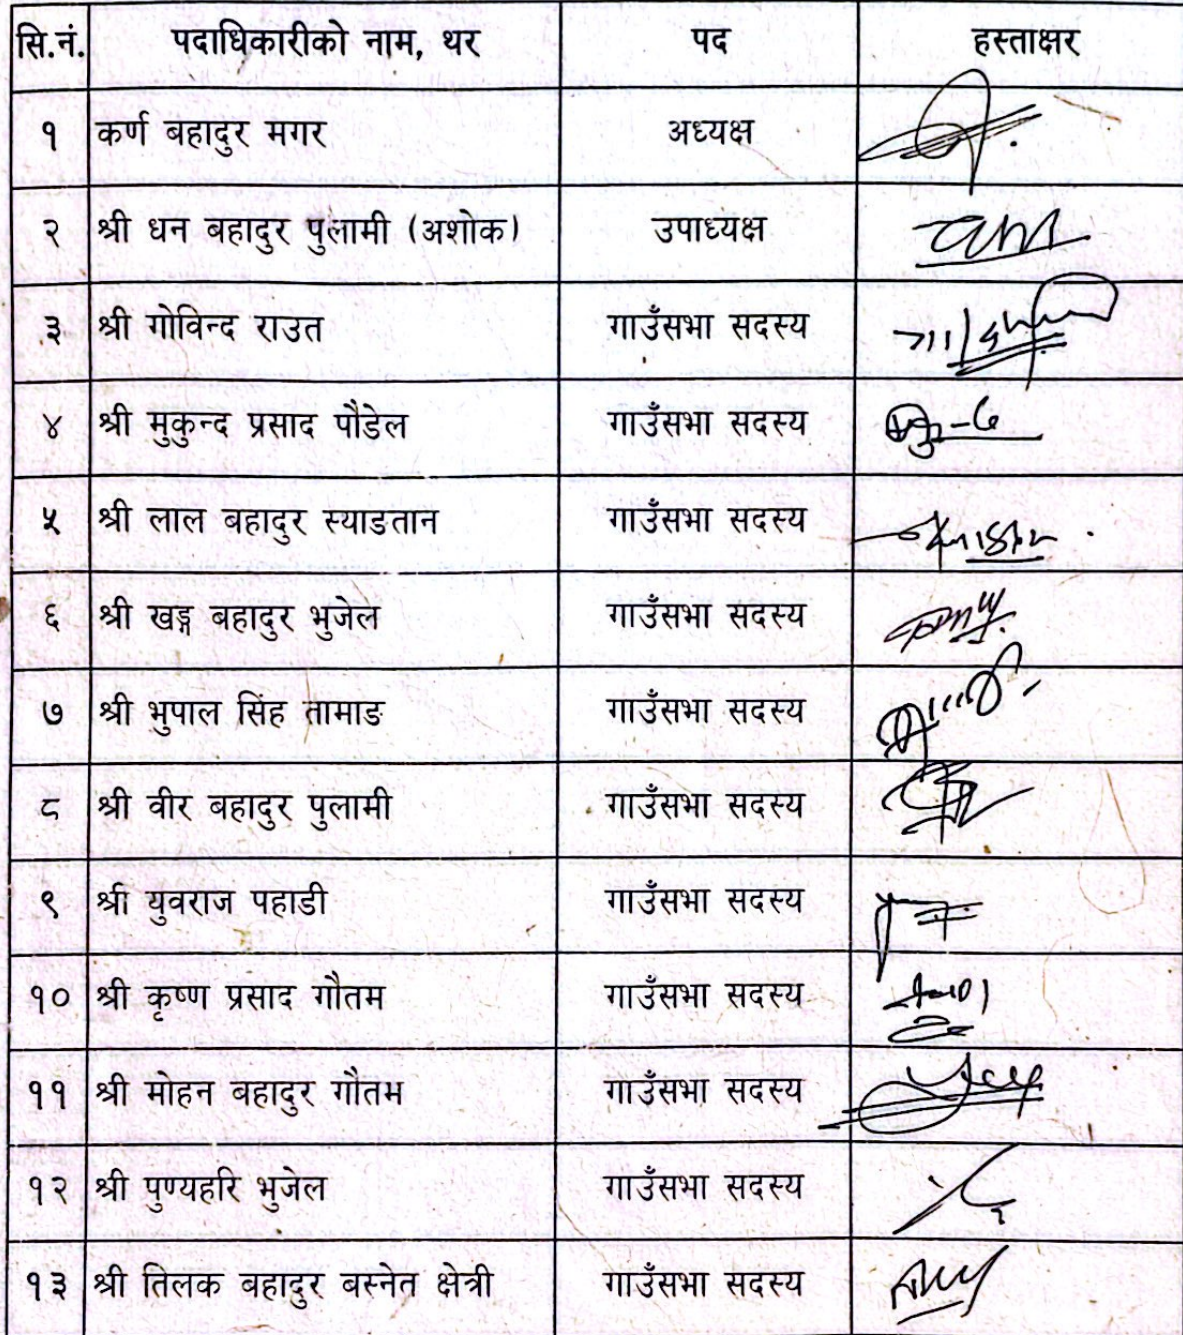 सि.नं. पदाधिकारीको नाम, थर पद हस्ताक्षर
१ कर्ण बहादुर मगर अध्यक्ष
२ श्री धन बहादुर पुलामी (अशोक) उपाध्यक्ष
३ श्री गोविन्द राउत गाउँसभा सदस्य
४ श्री मुकुन्द प्रसाद पौडेल गाउँसभा सदस्य
५ श्री लाल बहादुर स्याङतान गाउँसभा सदस्य
६ श्री खड्ग बहादुर भुजेल गाउँसभा सदस्य
७ श्री भुपाल सिंह तामाङ गाउँसभा सदस्य
८ श्री वीर बहादुर पुलामी गाउँसभा सदस्य
९ श्री युवराज पहाडी गाउँसभा सदस्य
१० श्री कृष्ण प्रसाद गौतम गाउँसभा सदस्य
११ श्री मोहन बहादुर गौतम गाउँसभा सदस्य
१२ श्री पुण्यहरि भुजेल गाउँसभा सदस्य
१३ श्री तिलक बहादुर बस्नेत क्षेत्री गाउँसभा सदस्य